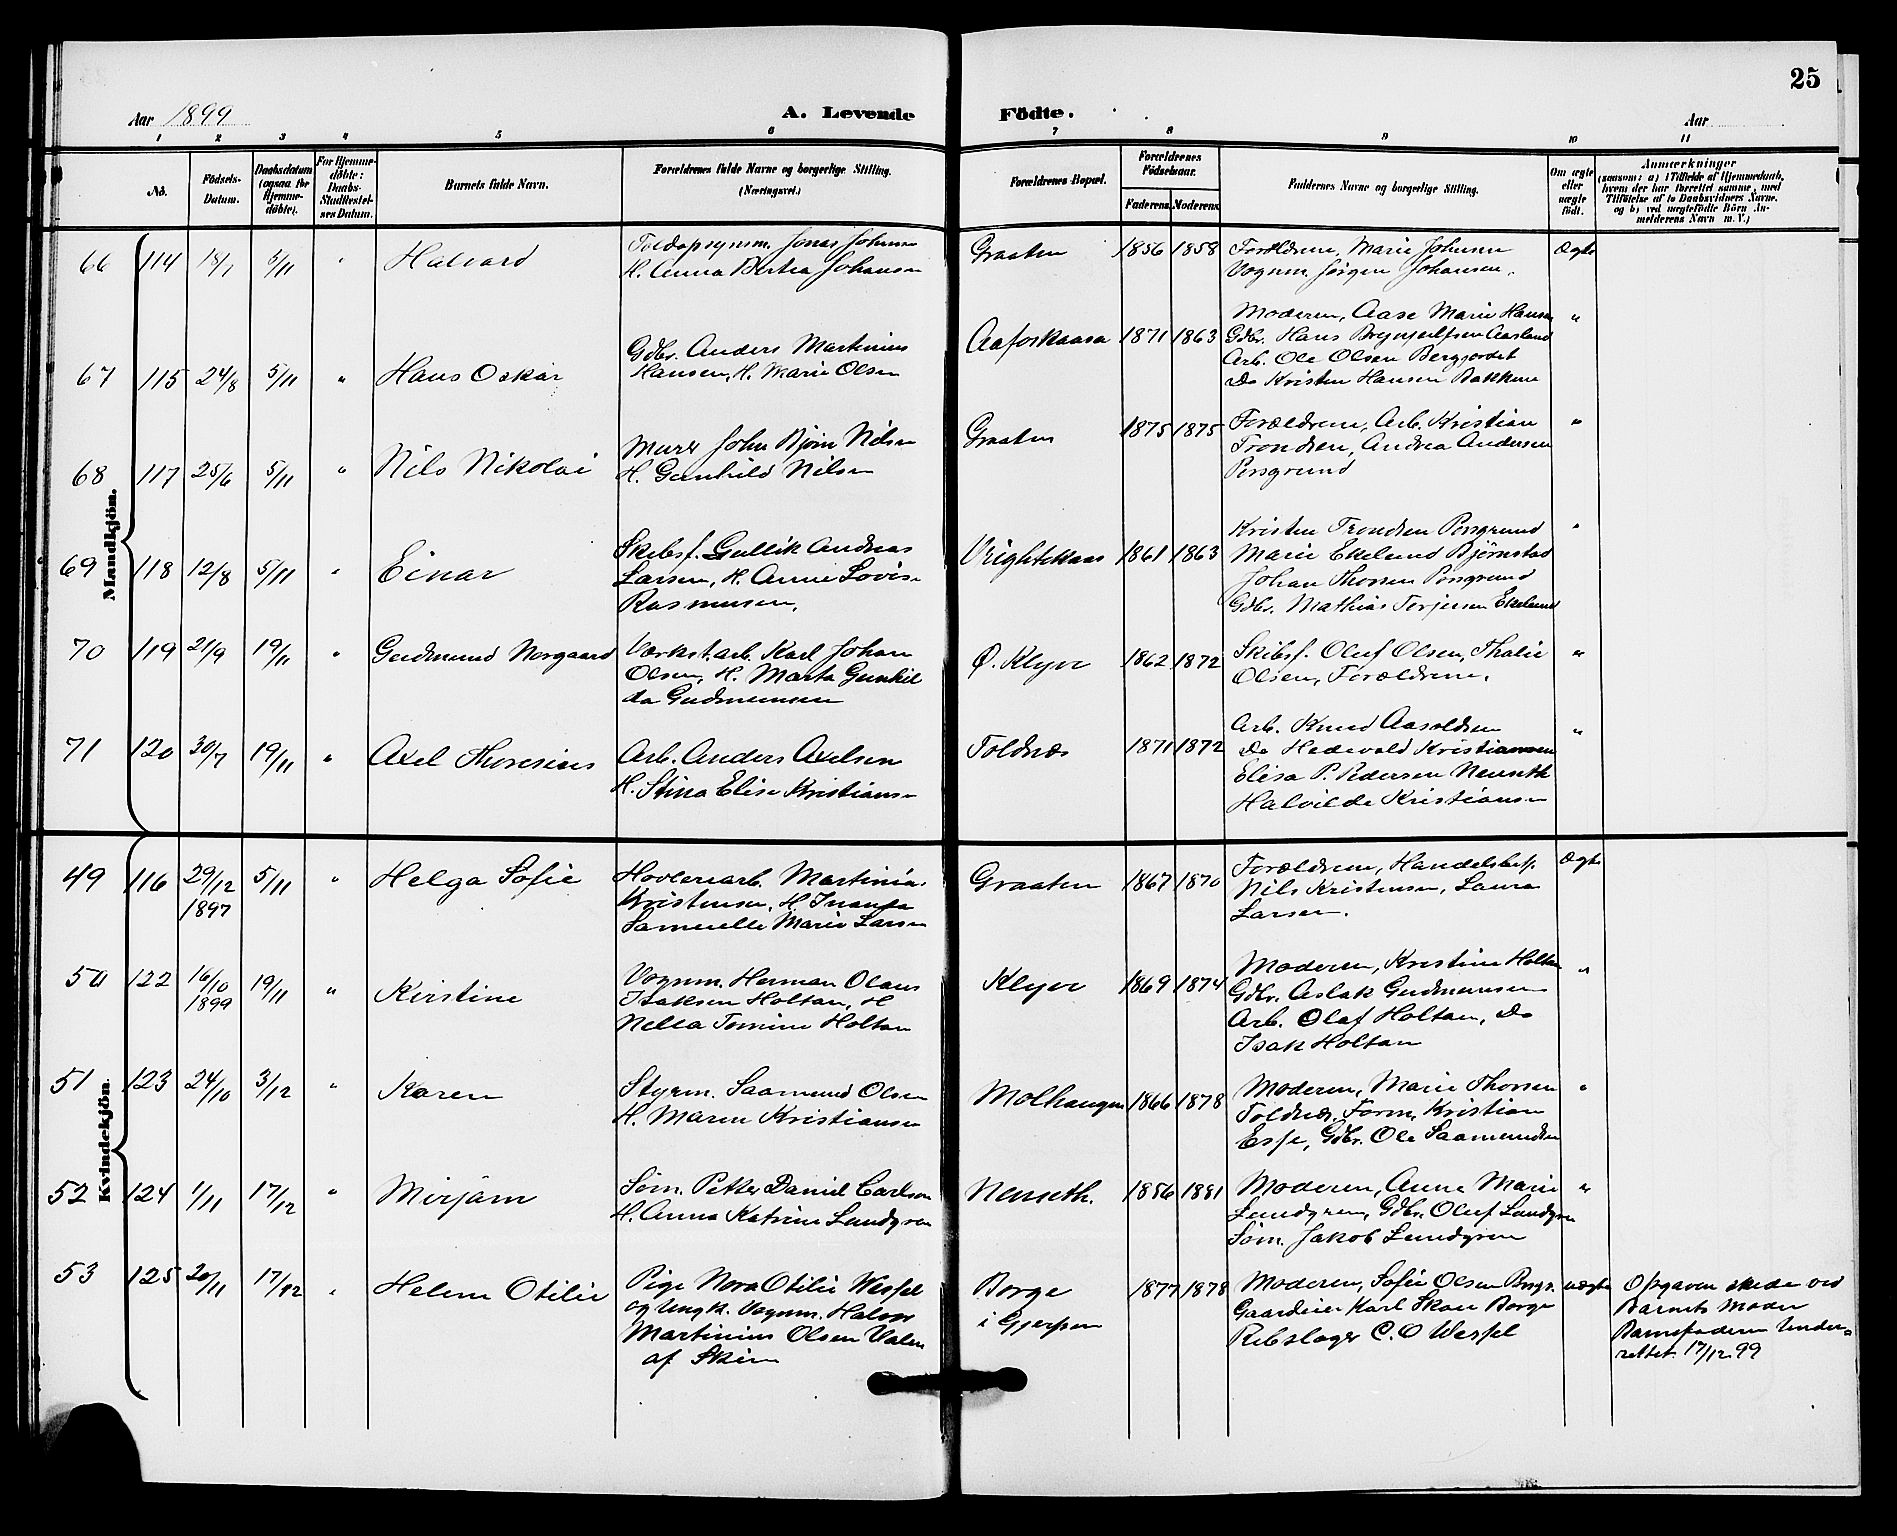 25
Aar 1899
A. Levende Födte.
Aar
1 2 3 4 5 6 7 8 9 10 11
No. Födsels-Datum. Daabsdatum (ogsaa for Hjemmedöbte). For Hjemmedöbte: Daabs-Stadfæstelses Datum. Barnets fulde Navn. Forældrenes fulde Navne og borgerlige Stilling. (Næringsvei.) Forældrenes Bopæl. Forældrenes Födselsaar. Faderens. Moderens. Faddernes Navne og borgerlige Stilling. Om ægte eller uægte födt. Anmærkninger (saasom: a) i Tilfælde af Hjemmedaab, hvem der har forrettet samme, med Tilföielse af to Daabsvidners Navne, og b) ved uægtefödte Börn Anmelderens Navn m. V.)
Mandkjön.
66 114 18/1 5/11 " Halvard
Toldopsynm. Jonas Johnsen
H. Anna Bertea Johansen
Graaten 1856 1858
Forældrene, Marie Johnsen
Vognm. Jørgen Johansen.
Ægte
67 115 24/8 5/11 " Hans Oskar
Gdbr. Anders Martinius
Hansen, H. Marie Olsen
Aafoskaasa 1871 1863
Moderen, Aase Marie Hansen
Gdbr. Hans Brynjulfsen Aasland
Arb. Ole Olsen Bergjordet
Do Kristen Hansen Bakkene
"
68 117 25/6 5/11 " Nils Nikolai
Murer John Bjørn Nilsen
H. Gunhild Nilsen
Graaten 1875 1875
Forældrene, Arb. Kristian
Trondsen, Andrea Andersen
Porsgrund
"
69 118 12/8 5/11 " Einar
Skibsf. Gullik Andreas
Larsen, H. Anne Lovise
Rasmussen.
Vrightskaas 1861 1863
Kristen Trondsen Porsgrund
Marie Ekelund Bjørnstad
Johan Thorsen Porsgrund
Gdbr. Mathias Torjusen Ekelund
"
70 119 21/9 19/11 " Gudmund Norgaard
Værkst.arb. Karl Johan
Olsen, H. Marta Gunhil
da Gudmunsen
Ø. Klyve 1862 1872
Skibsf. Oluf Olsen, Thalie
Olsen, Forældrene.
"
71 120 30/7 19/11 " Axel Thoresius
Arb. Anders Axelsen
H. Stina Elise Kristiansen
Toldnæs 1871 1872
Arb. Knud Aasoldsen
Do Hedevold Kristiansen
Elisa P. Pedersen Nenseth
Halvilde Kristiansen
"
Kvindekjön.
49 116 29/12 1897 5/11 " Helga Sofie
Høvleriarb. Martinias
Kristensen, H.
Samuelle Marie Larsen
Graaten 1867 1870
Forældrene, Handelsbest.
Nils Kristensen, Laura
Larsen.
Ægte
50 122 16/10 1899 19/11 " Kirstine
Vognm. Herman Olaus
Isaksen Holtan, H
Nella Tomine Holtan
Klyve 1869 1874
Moderen, Kristine Holtan
Gdbr. Aslak Gudmunsen
Arb. Olaf Holtan, Do
Isak Holtan
"
51 123 24/10 3/12 " Karen
Styrm. Saamund Olsen
H. Maren Kristiansen
Molhaugen 1866 1878
Moderen, Marie Thorsen
Toldnæs, Form. Kristian
Esse, Gdbr. Ole Saamundsen
"
52 124 1/11 17/12 " Mirjam
Søm. Petter Daniel Carlson
H. Anna Katrine Lundgren
Nenseth. 1856 1881
Moderen, Anne Marie
Lundgren, Gdbr. Oluf Lundgren
Søm. Jakob Lundgren
"
53 125 20/11 17/12 " Helene Otilie
Pige Nora Otilie Wessel
og Ungk. Vognm. Halvor
Martinius Olsen Valen
af Skien
Borge
i Gjerpen
1877 1878
Moderen, Sofie Olsen Borge
Gaardeier Karl Skau Borge
Rebslager C. O Wessel
uægte
Opgaven skede ved
Barnets Moder
Barnefaderen Under-
rettet. 17/12 99